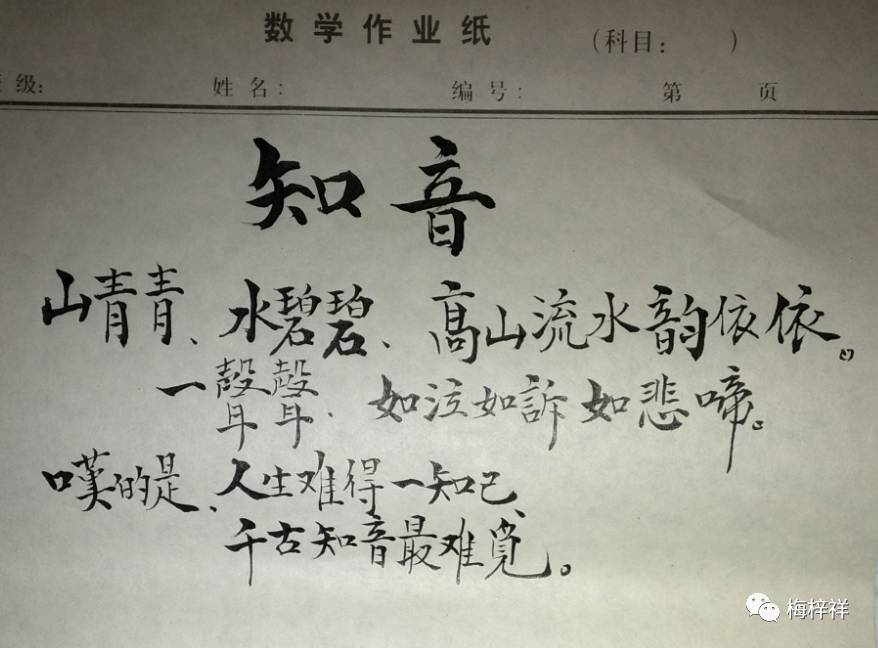 数学作业纸 (科目: )
级: 姓名: 编号: 第 页
知音
山青青、水碧碧、高山流水韵依依。
一聲聲、如泣如訴如悲啼。
嘆的是、人生难得一知己、
千古知音最难觅。
梅梓祥